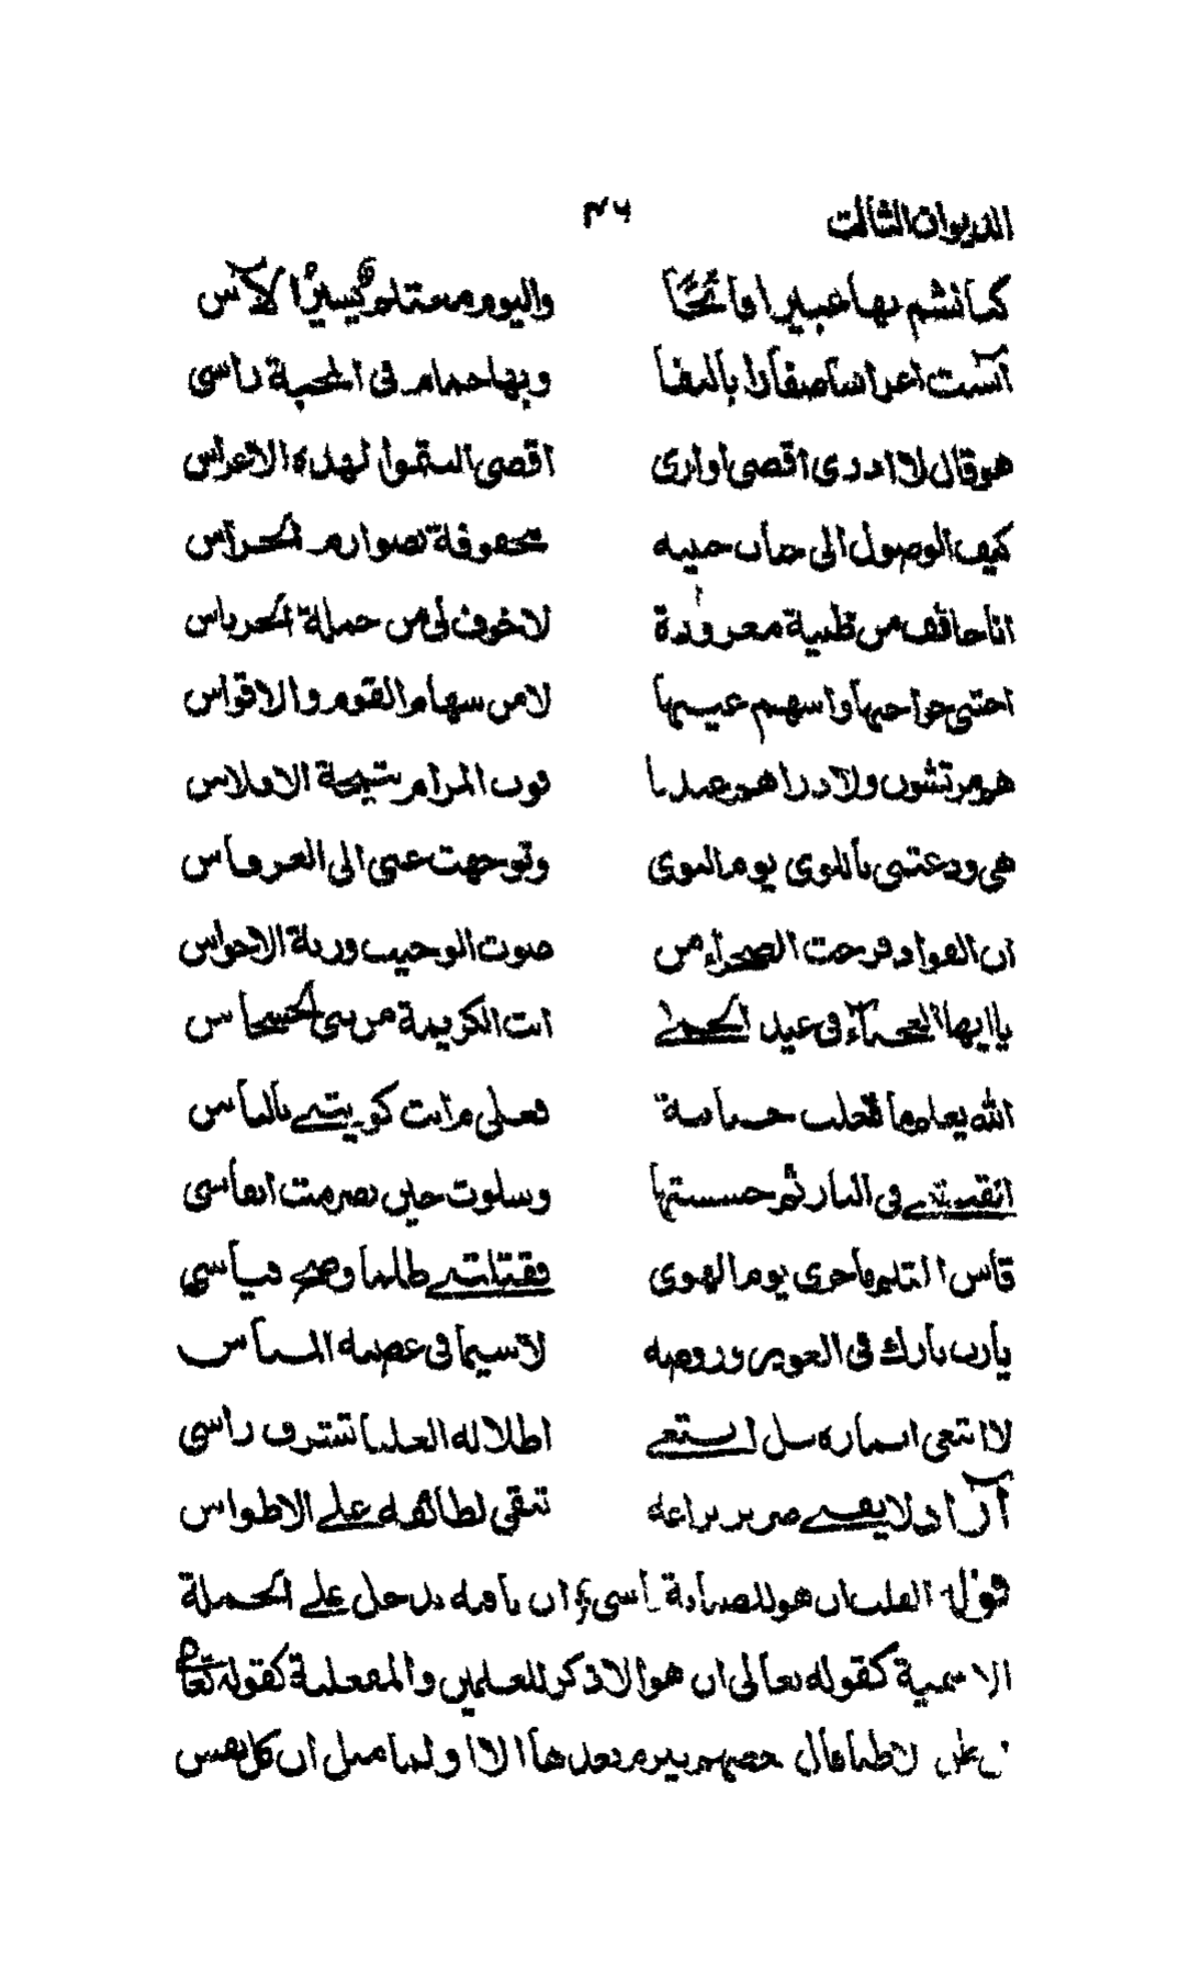 الديوان الثالث ٣٦
كما نشم بها عبيرا فائحًا واليوم معتلم يسيرُ الآس
آنست اعراسا صفارا بالنقا وبها حمام في المحبة راسى
هو قال لا ادرى اقصى او ارى اقصى السقوا لهذه الاعراس
كيف الوصول الى جناب حبيبه محفوفة بصوارم الحراس
انا خائف من ظبية معرورة لا خوف لى من حملة الحرباس
اخشى حواجبها واسهم عينها لا من سهام القوم والاقواس
هم يرتشون ولا دراهم عندنا فوت المرام نتيجة الافلاس
هي ودعتنى باللوى يوم النوى وتوجهت عنى الى العرفاس
ان الفواد فرحت الصحراء من صوت الوحيب ورنة الاجراس
يا ايها اللخماء في عيد الحمى انت الكريمة من بنى الحسحاس
الله يعلم ما لقلب حساسة فعلى م انت كويتنى بالناس
انقيتنى في النار ثم حسستها وسلوت حين تصرمت انفاسى
قاس التلم ما جرى يوم الهوى فقتلتنى ظلما وصح قياسى
يارب بارك في العوير وروضه لا سيما في غصنه المياس
لا ابتغى اسماره بل ابتغى اظلاله العليا تشرف راسى
آزاد لا يفنى صرير يراعه تبقى لطائفه على الاطواس
قولى القلب ان هو للصبابة اسى ان نافيه يدخل على الجملة
الاسمية كقوله تعالى ان هو الا ذكر للعلمين والفعلية كقوله تعالى
لا قال بعضهم يلزم بعدها الا او لما مثل ان كل نفس